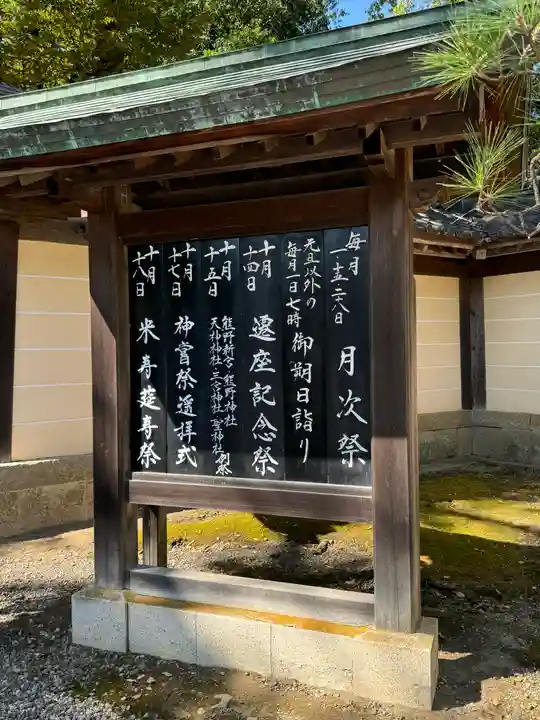 毎月
一・十五・二十八日
月次祭
元旦以外の
毎月一日七時
御朔日詣り
十月
十四日
遷座記念祭
十月
十五日
熊野新宮・熊野神社
天神神社・三宮神社・聖神社 例祭
十月
十七日
神嘗祭遥拝式
十月
十八日
米寿莚寿祭